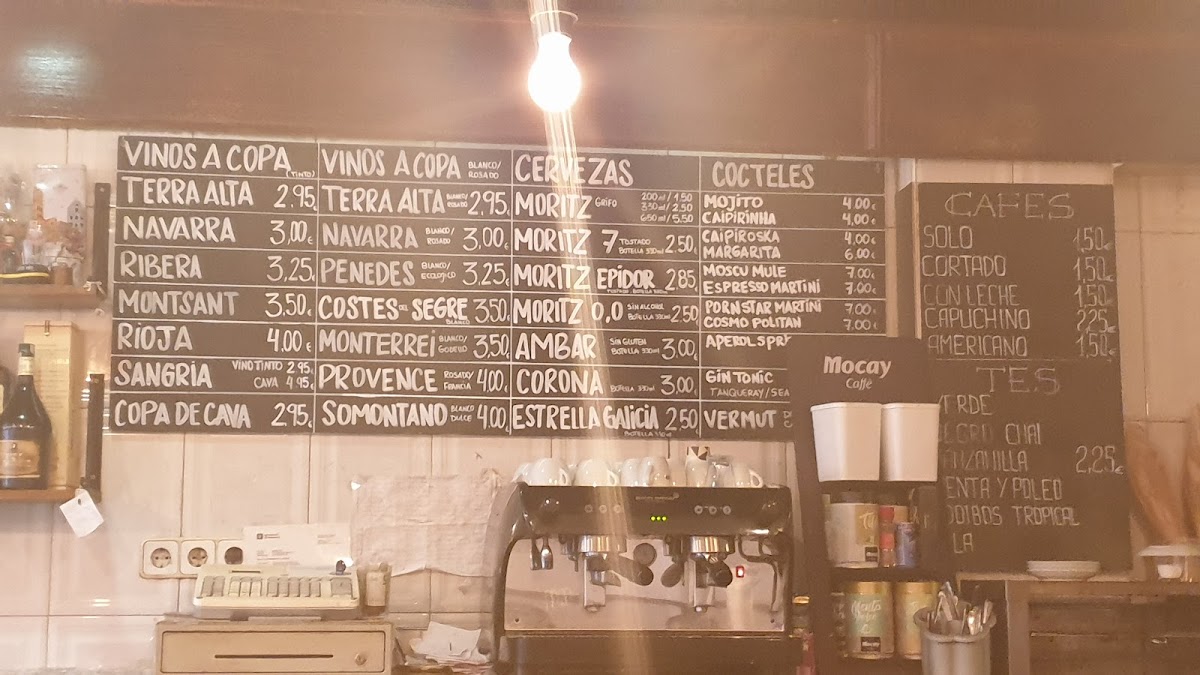 VINOS A COPA (TINTO)
TERRA ALTA 2.95
NAVARRA 3,00€
RIBERA 3,25
MONTSANT 3.50€
RIOJA 4.00€
SANGRIA VINO TINTO 2.95
CAVA 4.95€
COPA DE CAVA 2.95
VINOS A COPA BLANCO/
ROSADO
TERRA ALTA BLANCO/
ROSADO 2,95
NAVARRA BLANCO/
ROSADO 3,00€
PENEDES BLANCO/
ECOLOGICO 3,25
COSTES DEL SEGRE BLANCO 3,50€
MONTERREI BLANCO/
GODELLO 3,50
PROVENCE ROSADO/
FRANCIA 4,00€
SOMONTANO BLANCO
DULCE 4,00
CERVEZAS
MORITZ GRIFO 200ml / 1.50
330ml / 2.50
650ml / 5.50
MORITZ 7 TOSTADO
BOTELLA 330ml 2.50
MORITZ EPIDOR 2.85
MORITZ 0,0 SIN ALCOHOL
BOTELLA 330ml 2.50
AMBAR SIN GLUTEN
BOTELLA 330ml 3,00€
CORONA BOTELLA 330ml 3,00€
ESTRELLA GALICIA 2,50
BOTELLA 330ml
COCTELES
MOJITO 4.00€
CAIPIRINHA 4,00€
CAIPIROSKA 4.00€
MARGARITA 6.00€
MOSCU MULE 7.00€
ESPRESSO MARTINI 7.00€
PORNSTAR MARTINI 7.00€
COSMO POLITAN 7.00€
APEROL SPR
GIN TONIC
TANQUERAY/SEA
VERMUT
CAFES
SOLO 1,50€
CORTADO 1,50€
CON LECHE 1,50€
CAPUCHINO 2,25€
AMERICANO 1,50€
TES
ERDE
EGRO CHAI
ANZANILLA 2,25€
ENTA Y POLEO
OOIBOS TROPICAL
LA
Mocay
Caffè